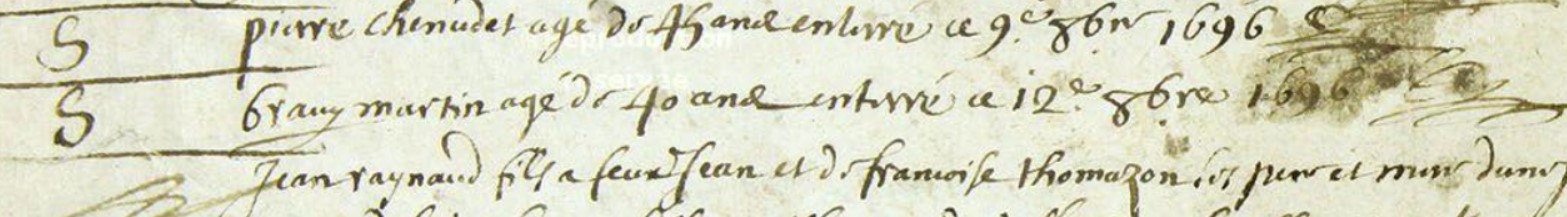 S pierre chenudet agé de 45 ans enterré ce 9e 8bre 1696
S martin agé de 40 ans enterré ce 12e 8bre 1696
Jean raynaud fils a feu Jean et de francoise thomazon ses pere et mere dune